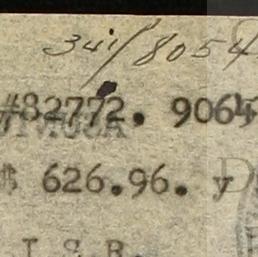 341/8054
#82772. 9064
$ 626.96. y
I.S.R.